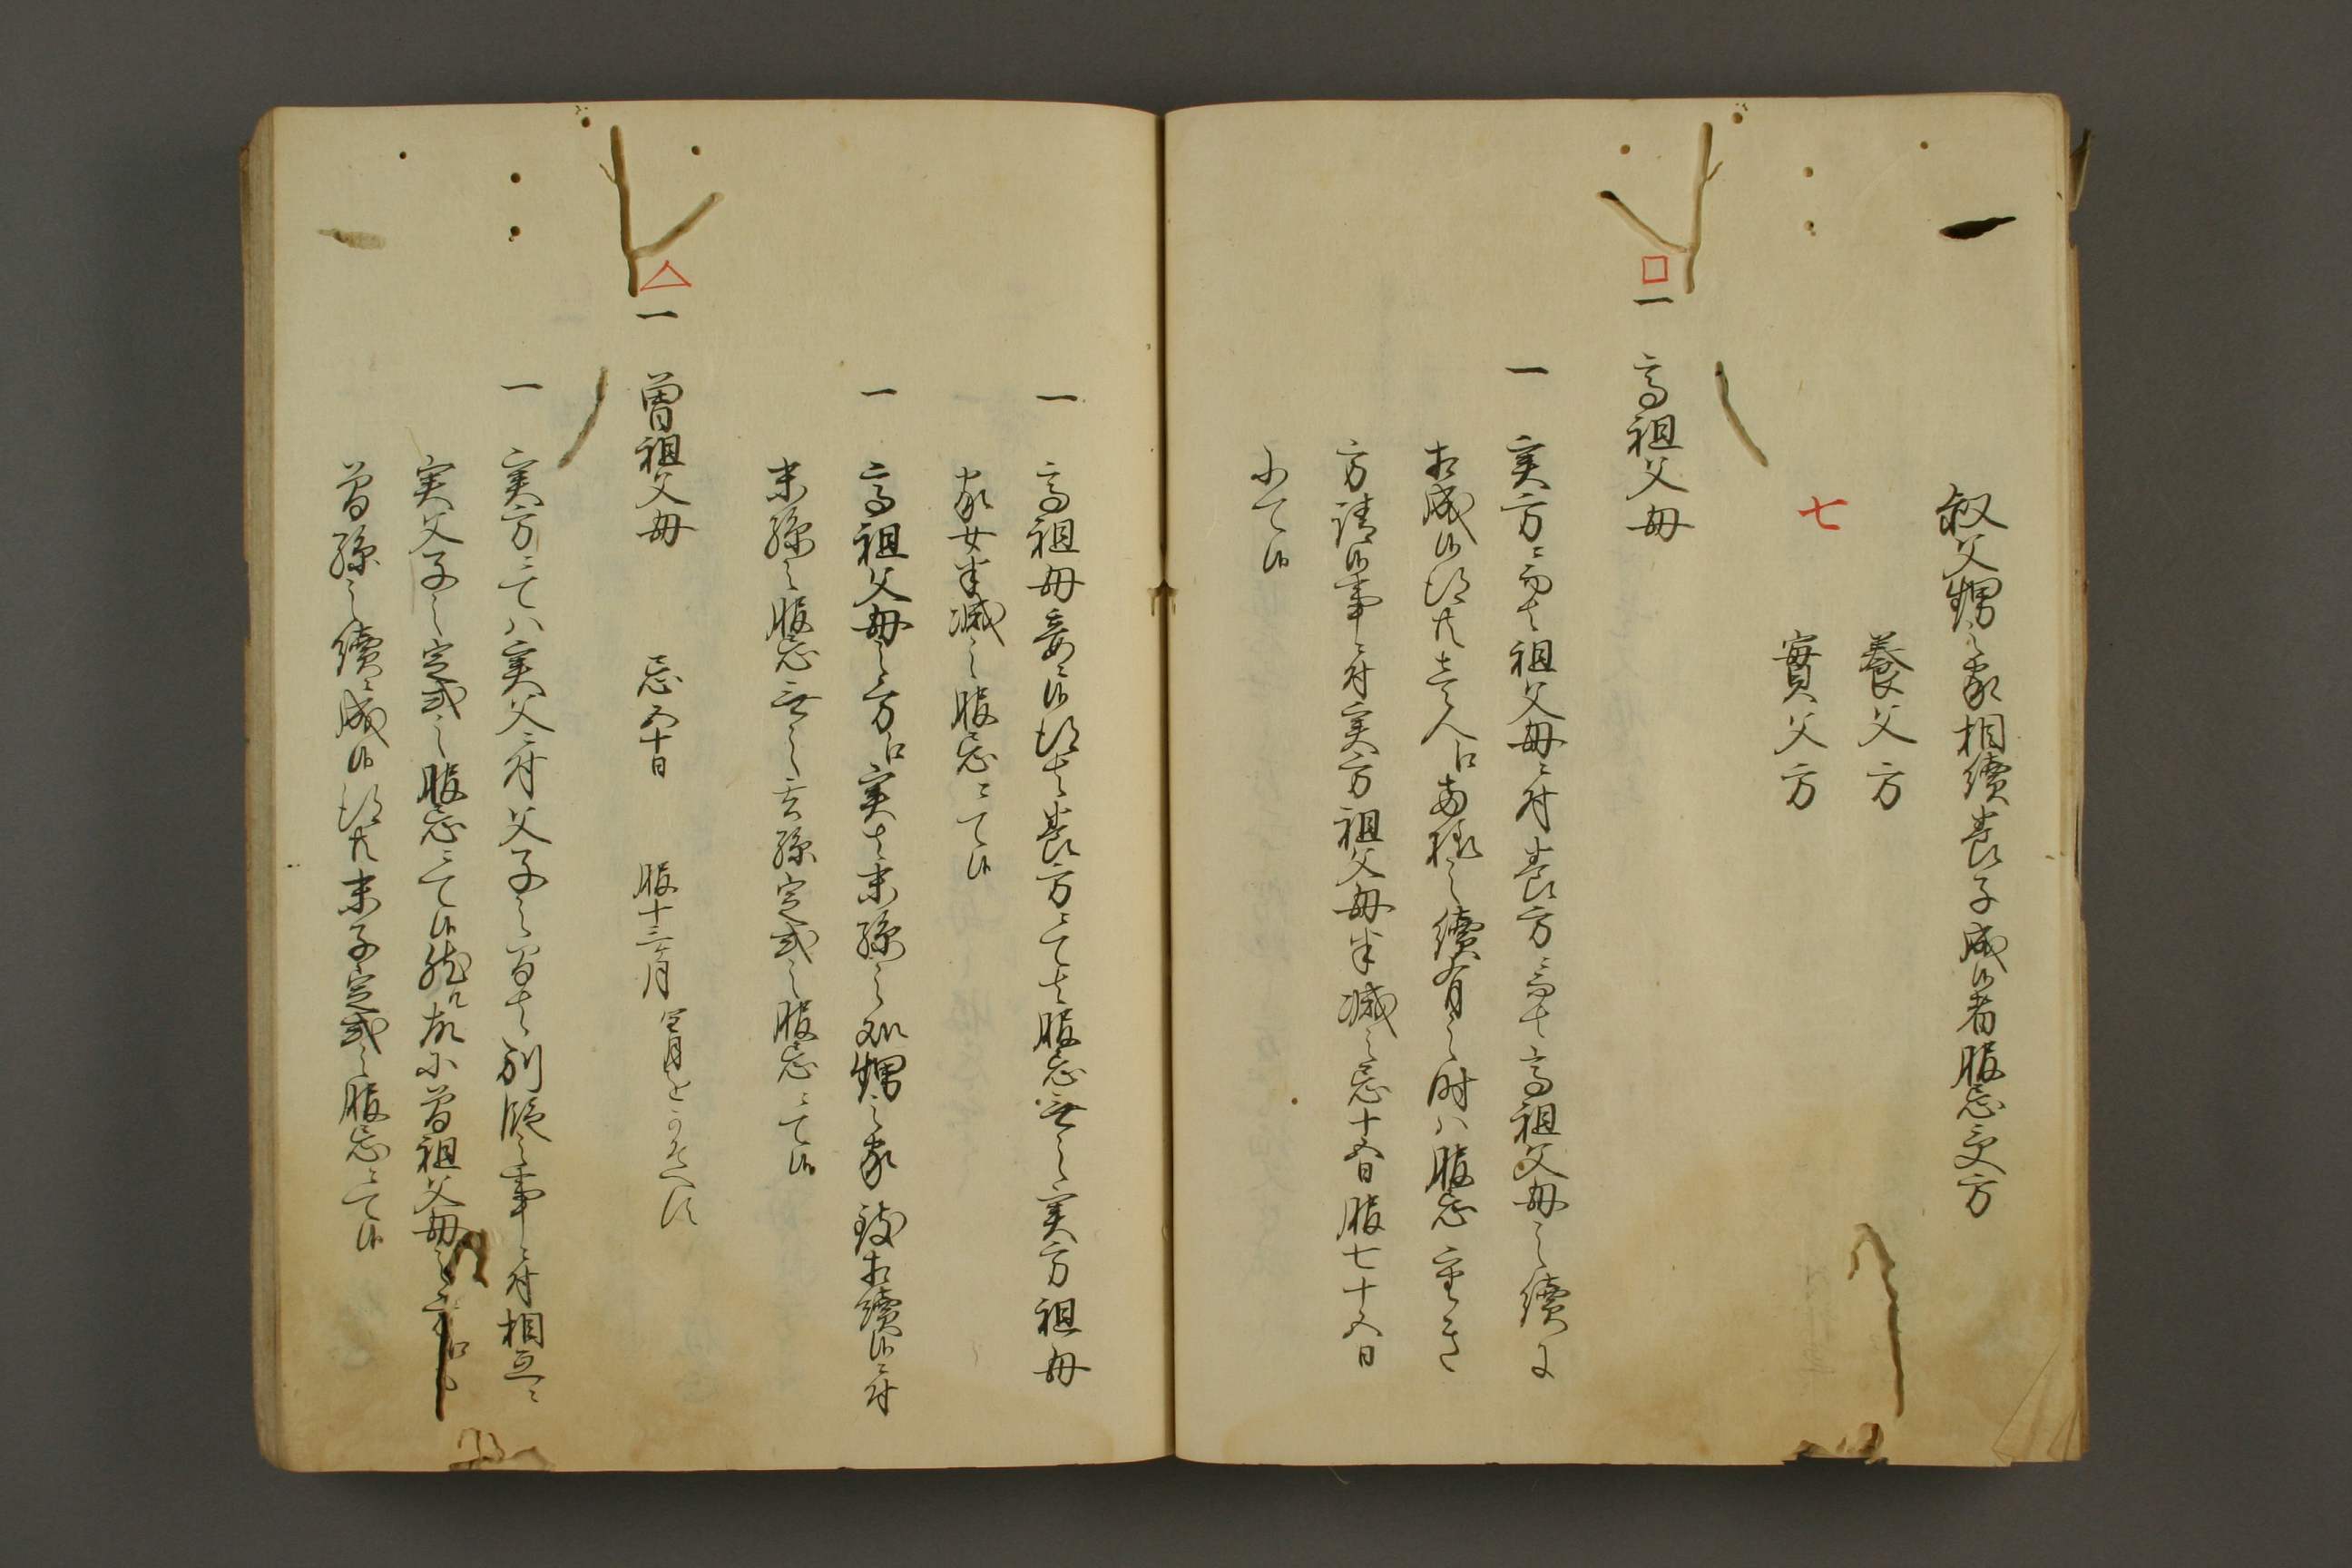 叔父甥之家相續養子成候者服忌受方
養父方
七 實父方
□一 高祖父母
一 実方ニ而者祖父母ニ付養方ニ而者高祖父母之續ニ
相成候得共壱人ニ両様之續有之時ハ服忌重き
方請候事ニ付実方祖父母半減之忌十五日服七十五日
ニ而候
一 高祖母妾ニ候得者養方ニ而者服忌無之実方祖母
家女半減之服忌ニ而候
一 高祖父母之方ニ実者末孫之処甥之家致相續候ニ付
末孫之服忌無之玄孫定式之服忌ニ而候
△一 曽祖父母 忌 日 服十三ケ月 閏月をかそへす
一 実方ニ而ハ実父ニ付父子之間者別段之事ニ付相互ニ
実父子之定式之服忌ニ而候然 故ニ曽祖父母之方
曽孫之續ニ成候得共末子定式之服忌ニ而候